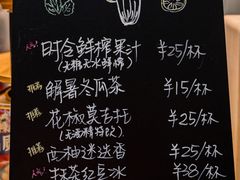 人气! 时令鲜榨果汁 ¥25/杯
(无糖无水鲜榨)
推荐 解暑冬瓜茶 ¥15/杯
推荐 花椒莫吉托 ¥25/杯
(无酒精特饮)
推荐 西柚迷迭香 ¥25/杯
人气! 抹茶红豆冰 ¥38/杯